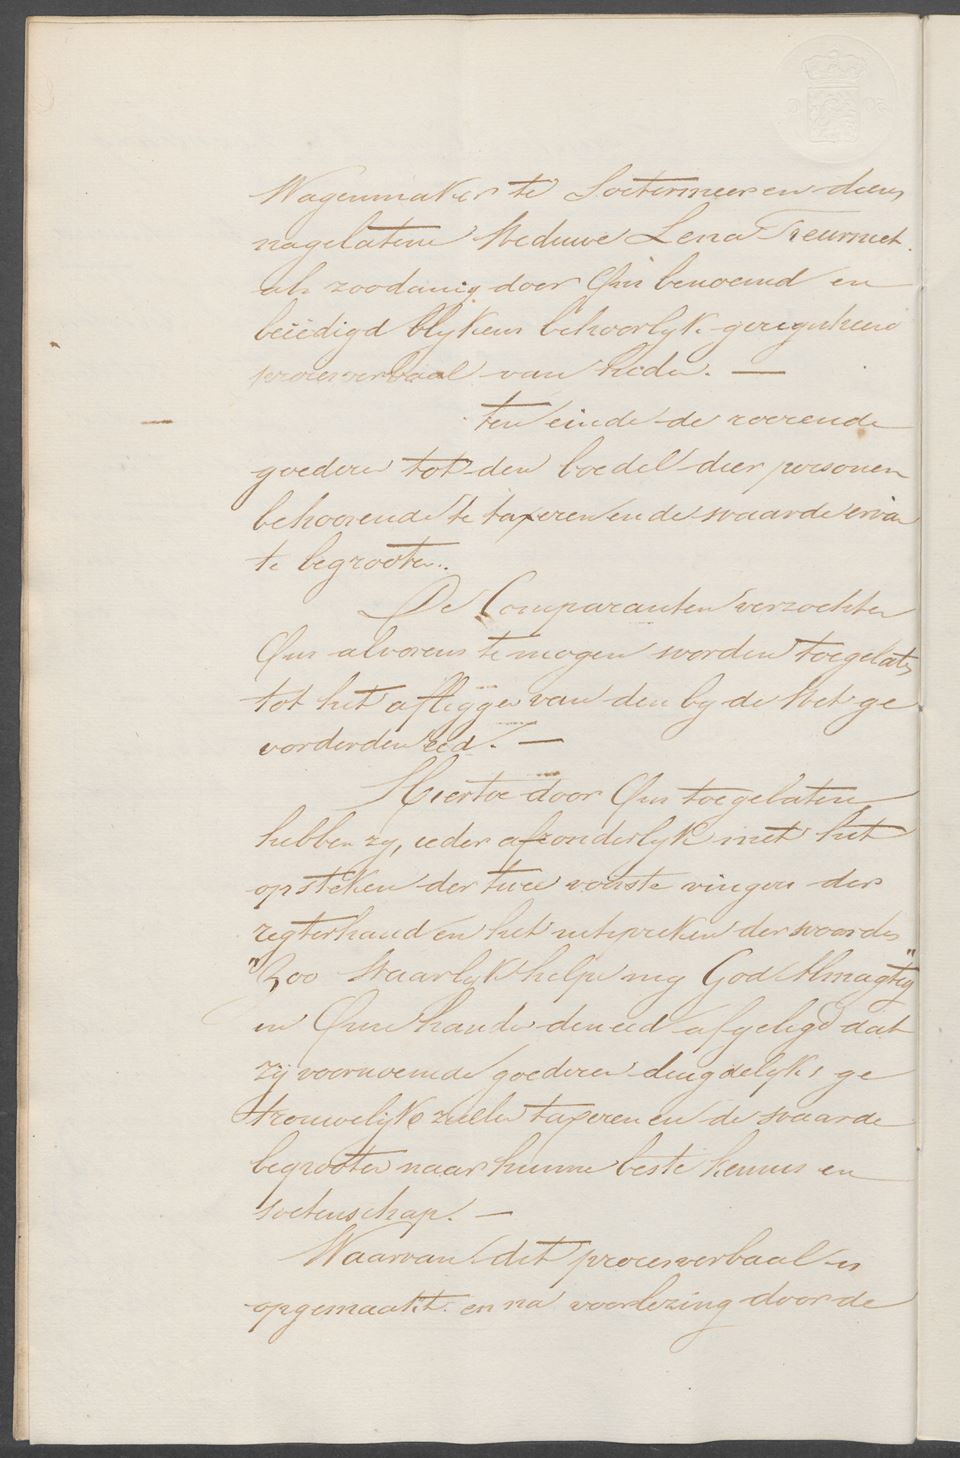 Wagenmaker te Soetermeer en diens
nagelatene Weduwe Lena Treurniet.
als zoodanig door Ons benoemd en
beëedigd blykens behoorlyk geregistreerd
procesverbaal van heden. —
ten einde de roerende
goederen tot den boedel dier personen
behoorende te taxeren en de waarde ervan
te begrooten.
De Comparanten verzochten
Ons alvorens te mogen worden toegelaten
tot het afleggen van den by de Wet ge
vorderden eed. —
Hiertoe door Ons toegelaten
hebben zy, ieder afzonderlyk met het
opsteken der twee voorste vingers der
regterhand en het uitspreken der woorden
"Zoo Waarlyk helpe my God Almagtig"
in Onze handen den eed afgelegd dat
zij voornoemde goederen deugdelyk &amp; ge
trouwelijk zullen taxeren en de waarde
begrooten naar hunne beste kennis en
wetenschap. —
Waarvan dit procesverbaal is
opgemaakt en na voorlezing door de